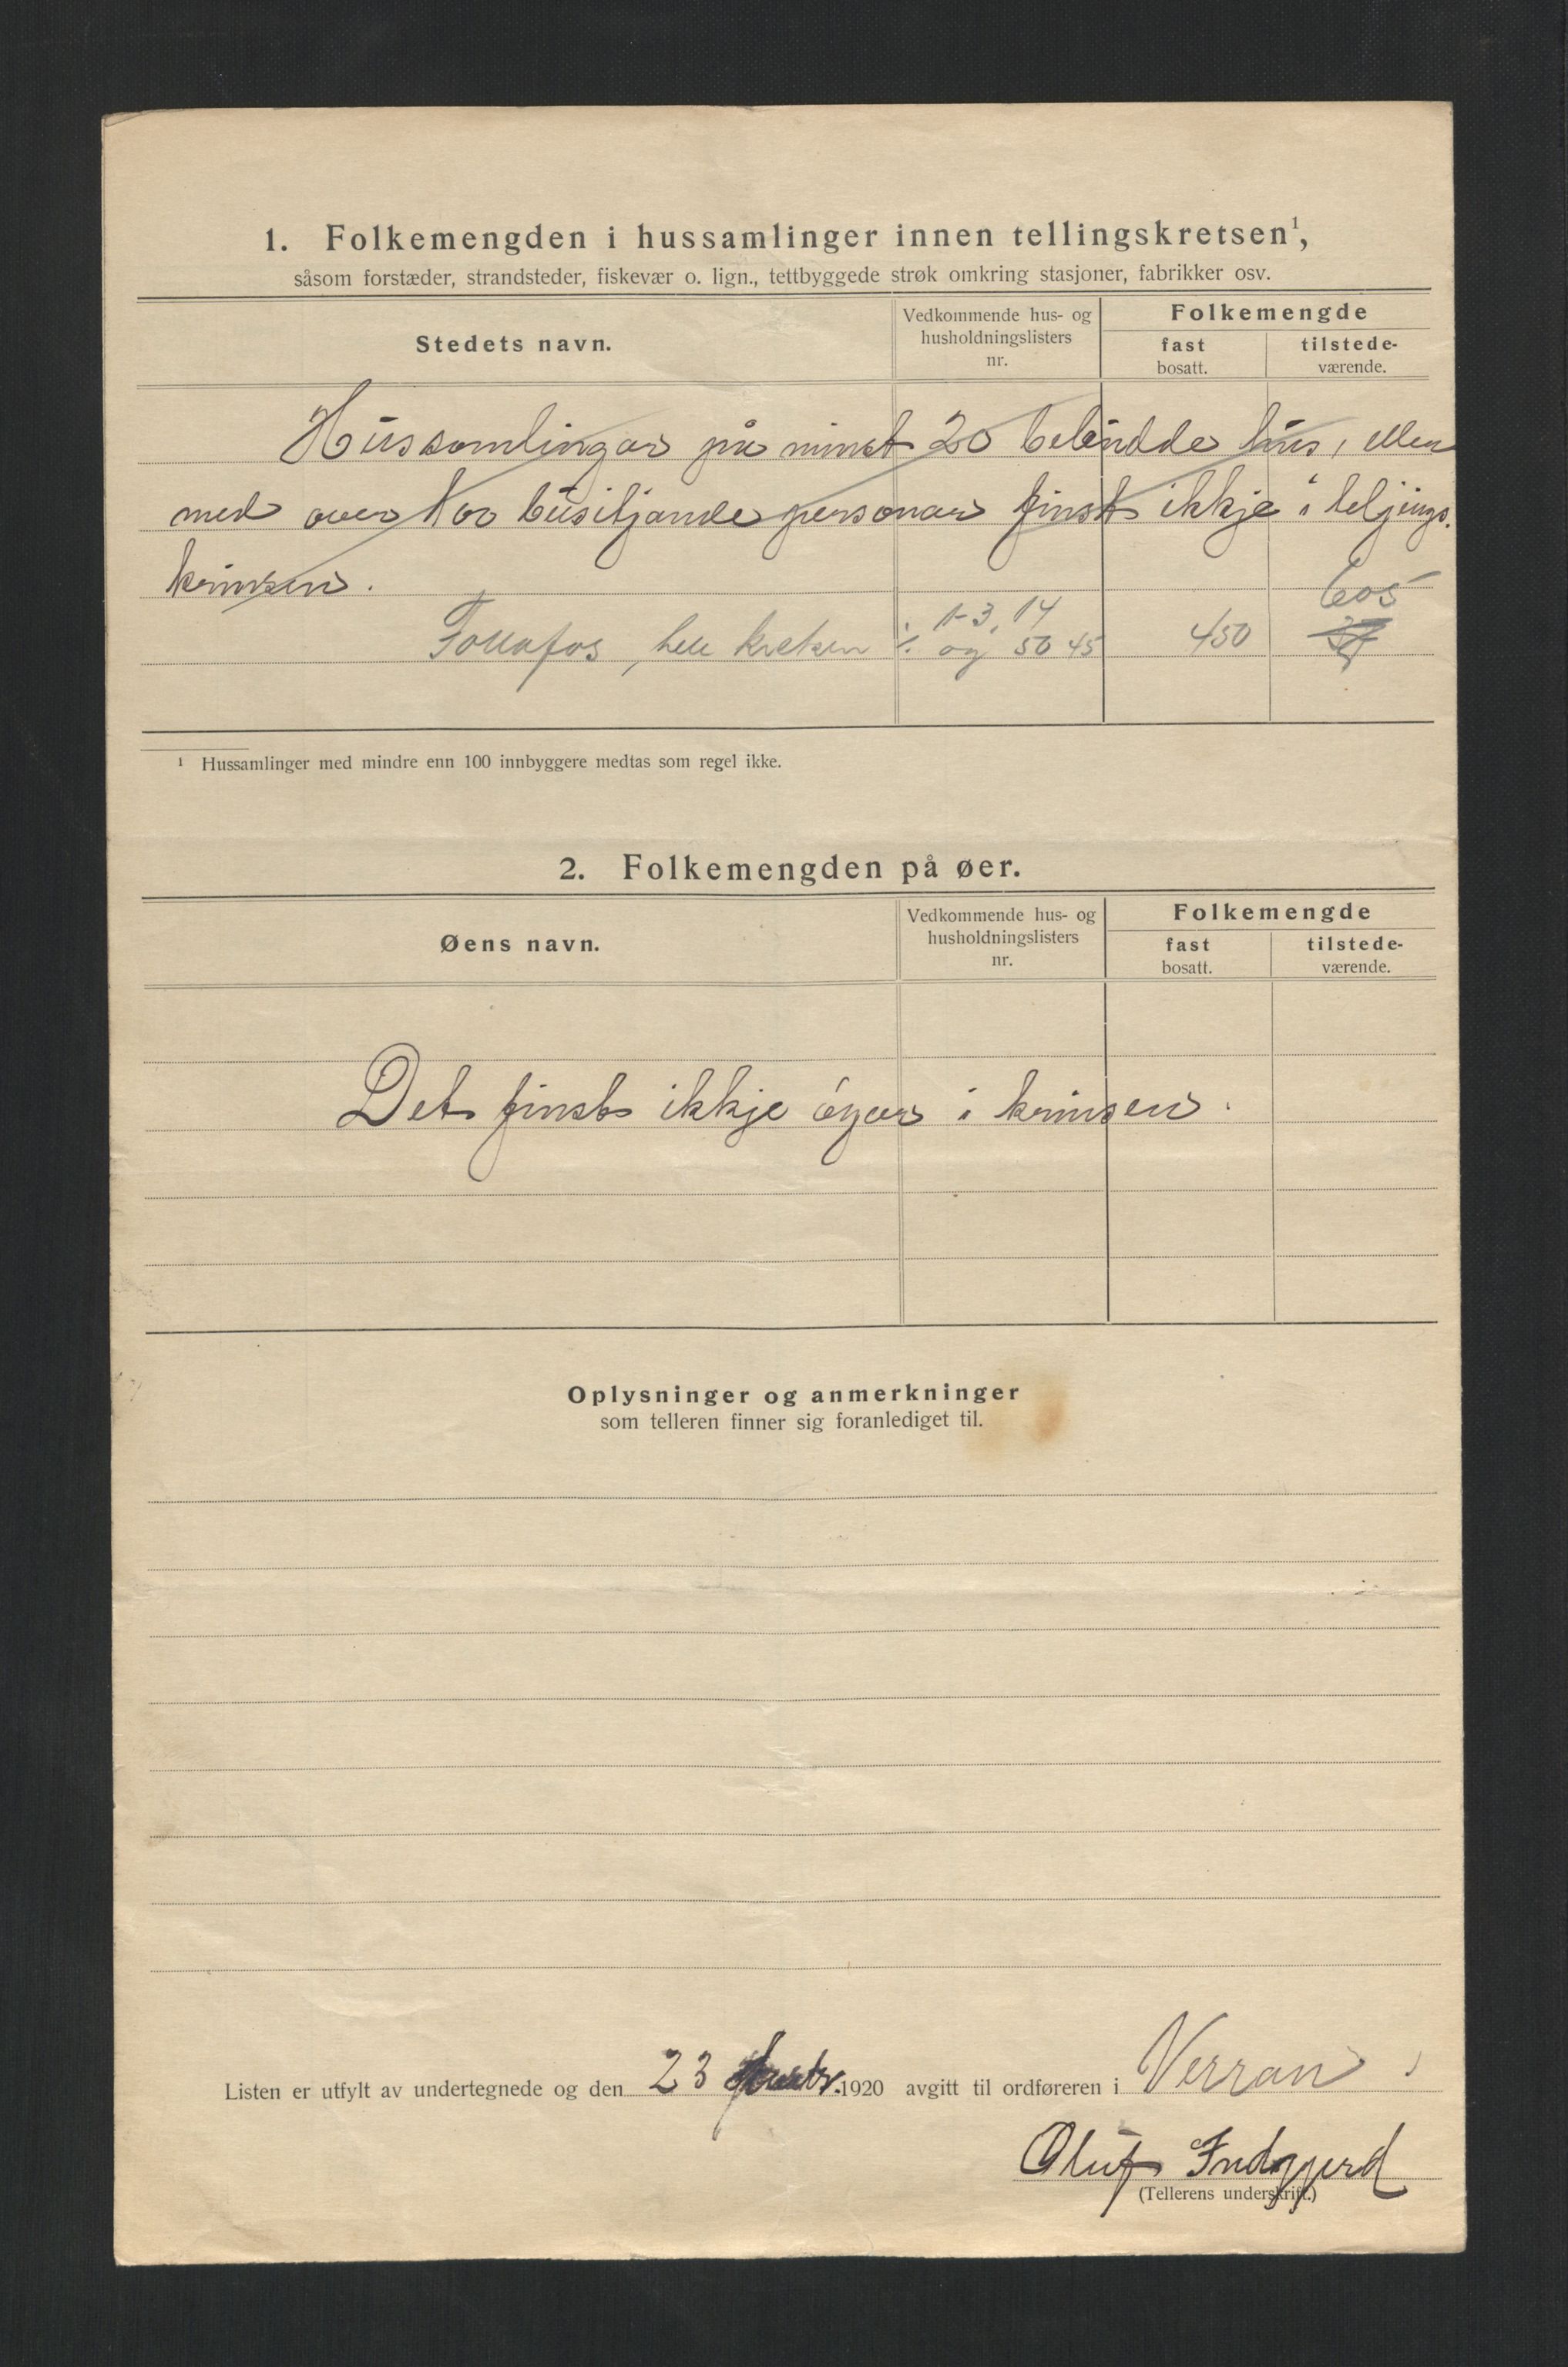 1. Folkemengden i hussamlinger innen tellingskretsen¹,
såsom forstæder, strandsteder, fiskevær o. lign., tettbyggede strøk omkring stasjoner, fabrikker osv.
Stedets navn.
Vedkommende hus- og
husholdningslisters
nr.
Folkemengde
fast
bosatt.
tilstede-
værende.
Hussamlingar på minst 20 bebudde hus, eller
med over 100 busitjande personar finst ikkje i teljings-
krinsen.
Follafos, hele kretsen ÷ 1-3, 14
og 50 45
450
605
¹ Hussamlinger med mindre enn 100 innbyggere medtas som regel ikke.
2. Folkemengden på øer.
Øens navn.
Vedkommende hus- og
husholdningslisters
nr.
Folkemengde
fast
bosatt.
tilstede-
værende.
Det finst ikkje öyar i krinsen.
Oplysninger og anmerkninger
som telleren finner sig foranlediget til.
Listen er utfylt av undertegnede og den 23 1920 avgitt til ordføreren i Verran
Oluf Indgjerd
(Tellerens underskrift.)